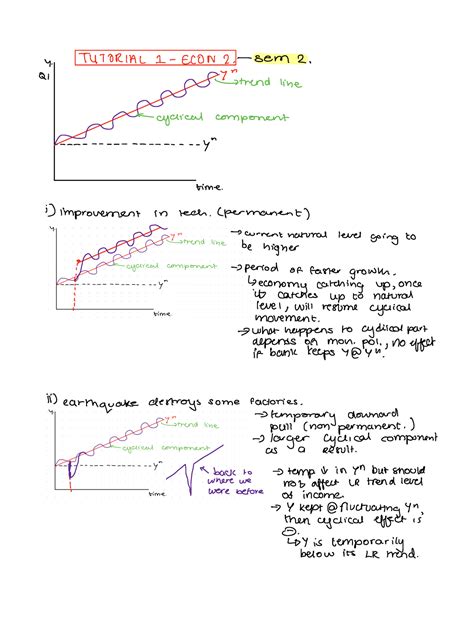 TUTORIAL 1 - ECON 2. — sem 2.
y
Q1
yⁿ
trend line
cyclical component
yⁿ
time.
i) improvement in tech. (permanent)
y
yⁿ
trend line
cyclical component
yⁿ
time.
→ current natural level going to
be higher
→ period of faster growth.
↳ economy catching up, once
it catches up to natural
level, will resume cyclical
movement.
→ what happens to cyclical part
depends on mon. pol., no effect
if bank keeps Y@Yⁿ.
ii) earthquake destroys some factories.
y
yⁿ
trend line
cyclical component
yⁿ
time.
back to
where we
were before
→ temporary downward
pull (non permanent.)
→ larger cyclical component
as a result.
→ temp ↓ in yⁿ but should
not affect LR trend level
of income.
→ Y kept @ fluctuating Yⁿ,
then cyclical effect is
⊖.
↳ Y is temporarily
below its LR trend.